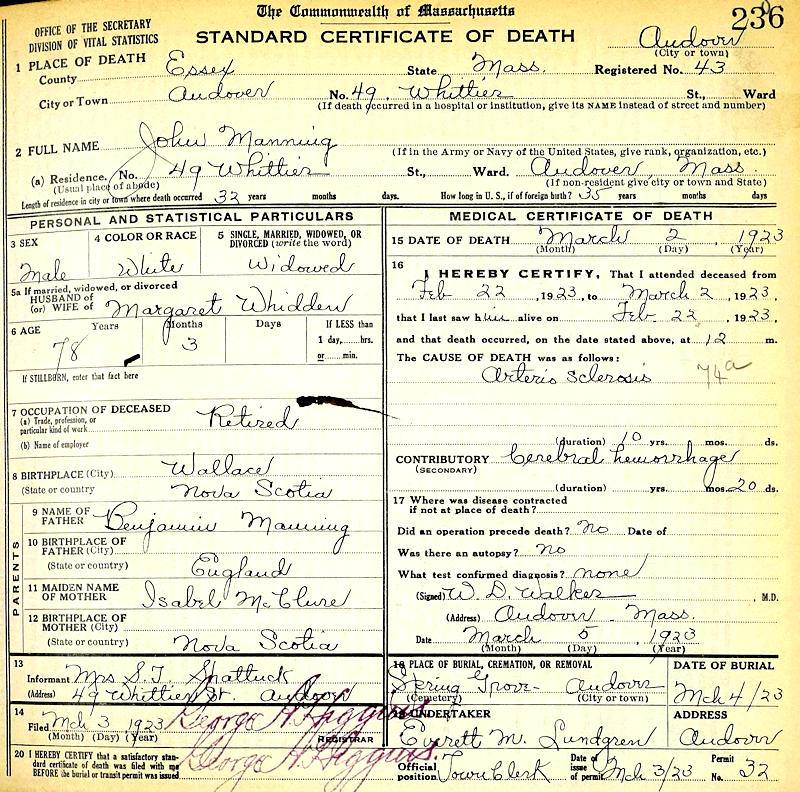 The Commonwealth of Massachusetts
236
OFFICE OF THE SECRETARY
DIVISION OF VITAL STATISTICS
STANDARD CERTIFICATE OF DEATH
Andover
(City or town)
1 PLACE OF DEATH
County Essex State Mass. Registered No. 43
City or Town Andover No. 49 Whittier St., Ward
(If death occurred in a hospital or institution, give its NAME instead of street and number)
2 FULL NAME John Manning
(If in the Army or Navy of the United States, give rank, organization, etc.)
(a) Residence. No. 49 Whittier St., Ward. Andover, Mass
(Usual place of abode) (If non-resident give city or town and State)
Length of residence in city or town where death occurred 32 years months days. How long in U. S., if of foreign birth? 35 years months days
PERSONAL AND STATISTICAL PARTICULARS
3 SEX
Male
4 COLOR OR RACE
White
5 SINGLE, MARRIED, WIDOWED, OR
DIVORCED (write the word)
Widowed
5a If married, widowed, or divorced
HUSBAND of
(or) WIFE of Margaret Whidden
6 AGE Years Months Days If LESS than
1 day, hrs.
or min.
78 3
If STILLBORN, enter that fact here
7 OCCUPATION OF DECEASED
(a) Trade, profession, or
particular kind of work Retired
(b) Name of employer
8 BIRTHPLACE (City) Wallace
(State or country) Nova Scotia
PARENTS
9 NAME OF
FATHER Benjamin Manning
10 BIRTHPLACE OF
FATHER (City)
(State or country) England
11 MAIDEN NAME
OF MOTHER Isabel McClure
12 BIRTHPLACE OF
MOTHER (City)
(State or country) Nova Scotia
13
Informant Mrs S.T. Shattuck
(Address) 49 Whittier St. Andover
14
Filed Mch 3 1923 George A. Higgins
(Month) (Day) (Year) REGISTRAR
20 I HEREBY CERTIFY that a satisfactory stan-
dard certificate of death was filed with me
BEFORE the burial or transit permit was issued
George A. Higgins
MEDICAL CERTIFICATE OF DEATH
15 DATE OF DEATH March 2, 1923
(Month) (Day) (Year)
16
I HEREBY CERTIFY, That I attended deceased from
Feb 22, 1923, to March 2, 1923,
that I last saw him alive on Feb. 22, 1923,
and that death occurred, on the date stated above, at 12 m.
The CAUSE OF DEATH was as follows:
Arterio sclerosis 74a
(duration) 10 yrs. mos. ds.
CONTRIBUTORY Cerebral hemorrhage
(SECONDARY)
(duration) yrs. mos. 20 ds.
17 Where was disease contracted
if not at place of death?
Did an operation precede death? No Date of
Was there an autopsy? No
What test confirmed diagnosis? none
(Signed) W. D. Walker M.D.
(Address) Andover Mass.
Date March 5, 1923
(Month) (Day) (Year)
18 PLACE OF BURIAL, CREMATION, OR REMOVAL
Spring Grove - Andover
(Cemetery) (City or town)
DATE OF BURIAL
Mch 4/23
19 UNDERTAKER
Everett M. Lundgren
ADDRESS
Andover
Official
position Town Clerk
Date of
issue
of permit Mch 3/23
Permit
No. 32